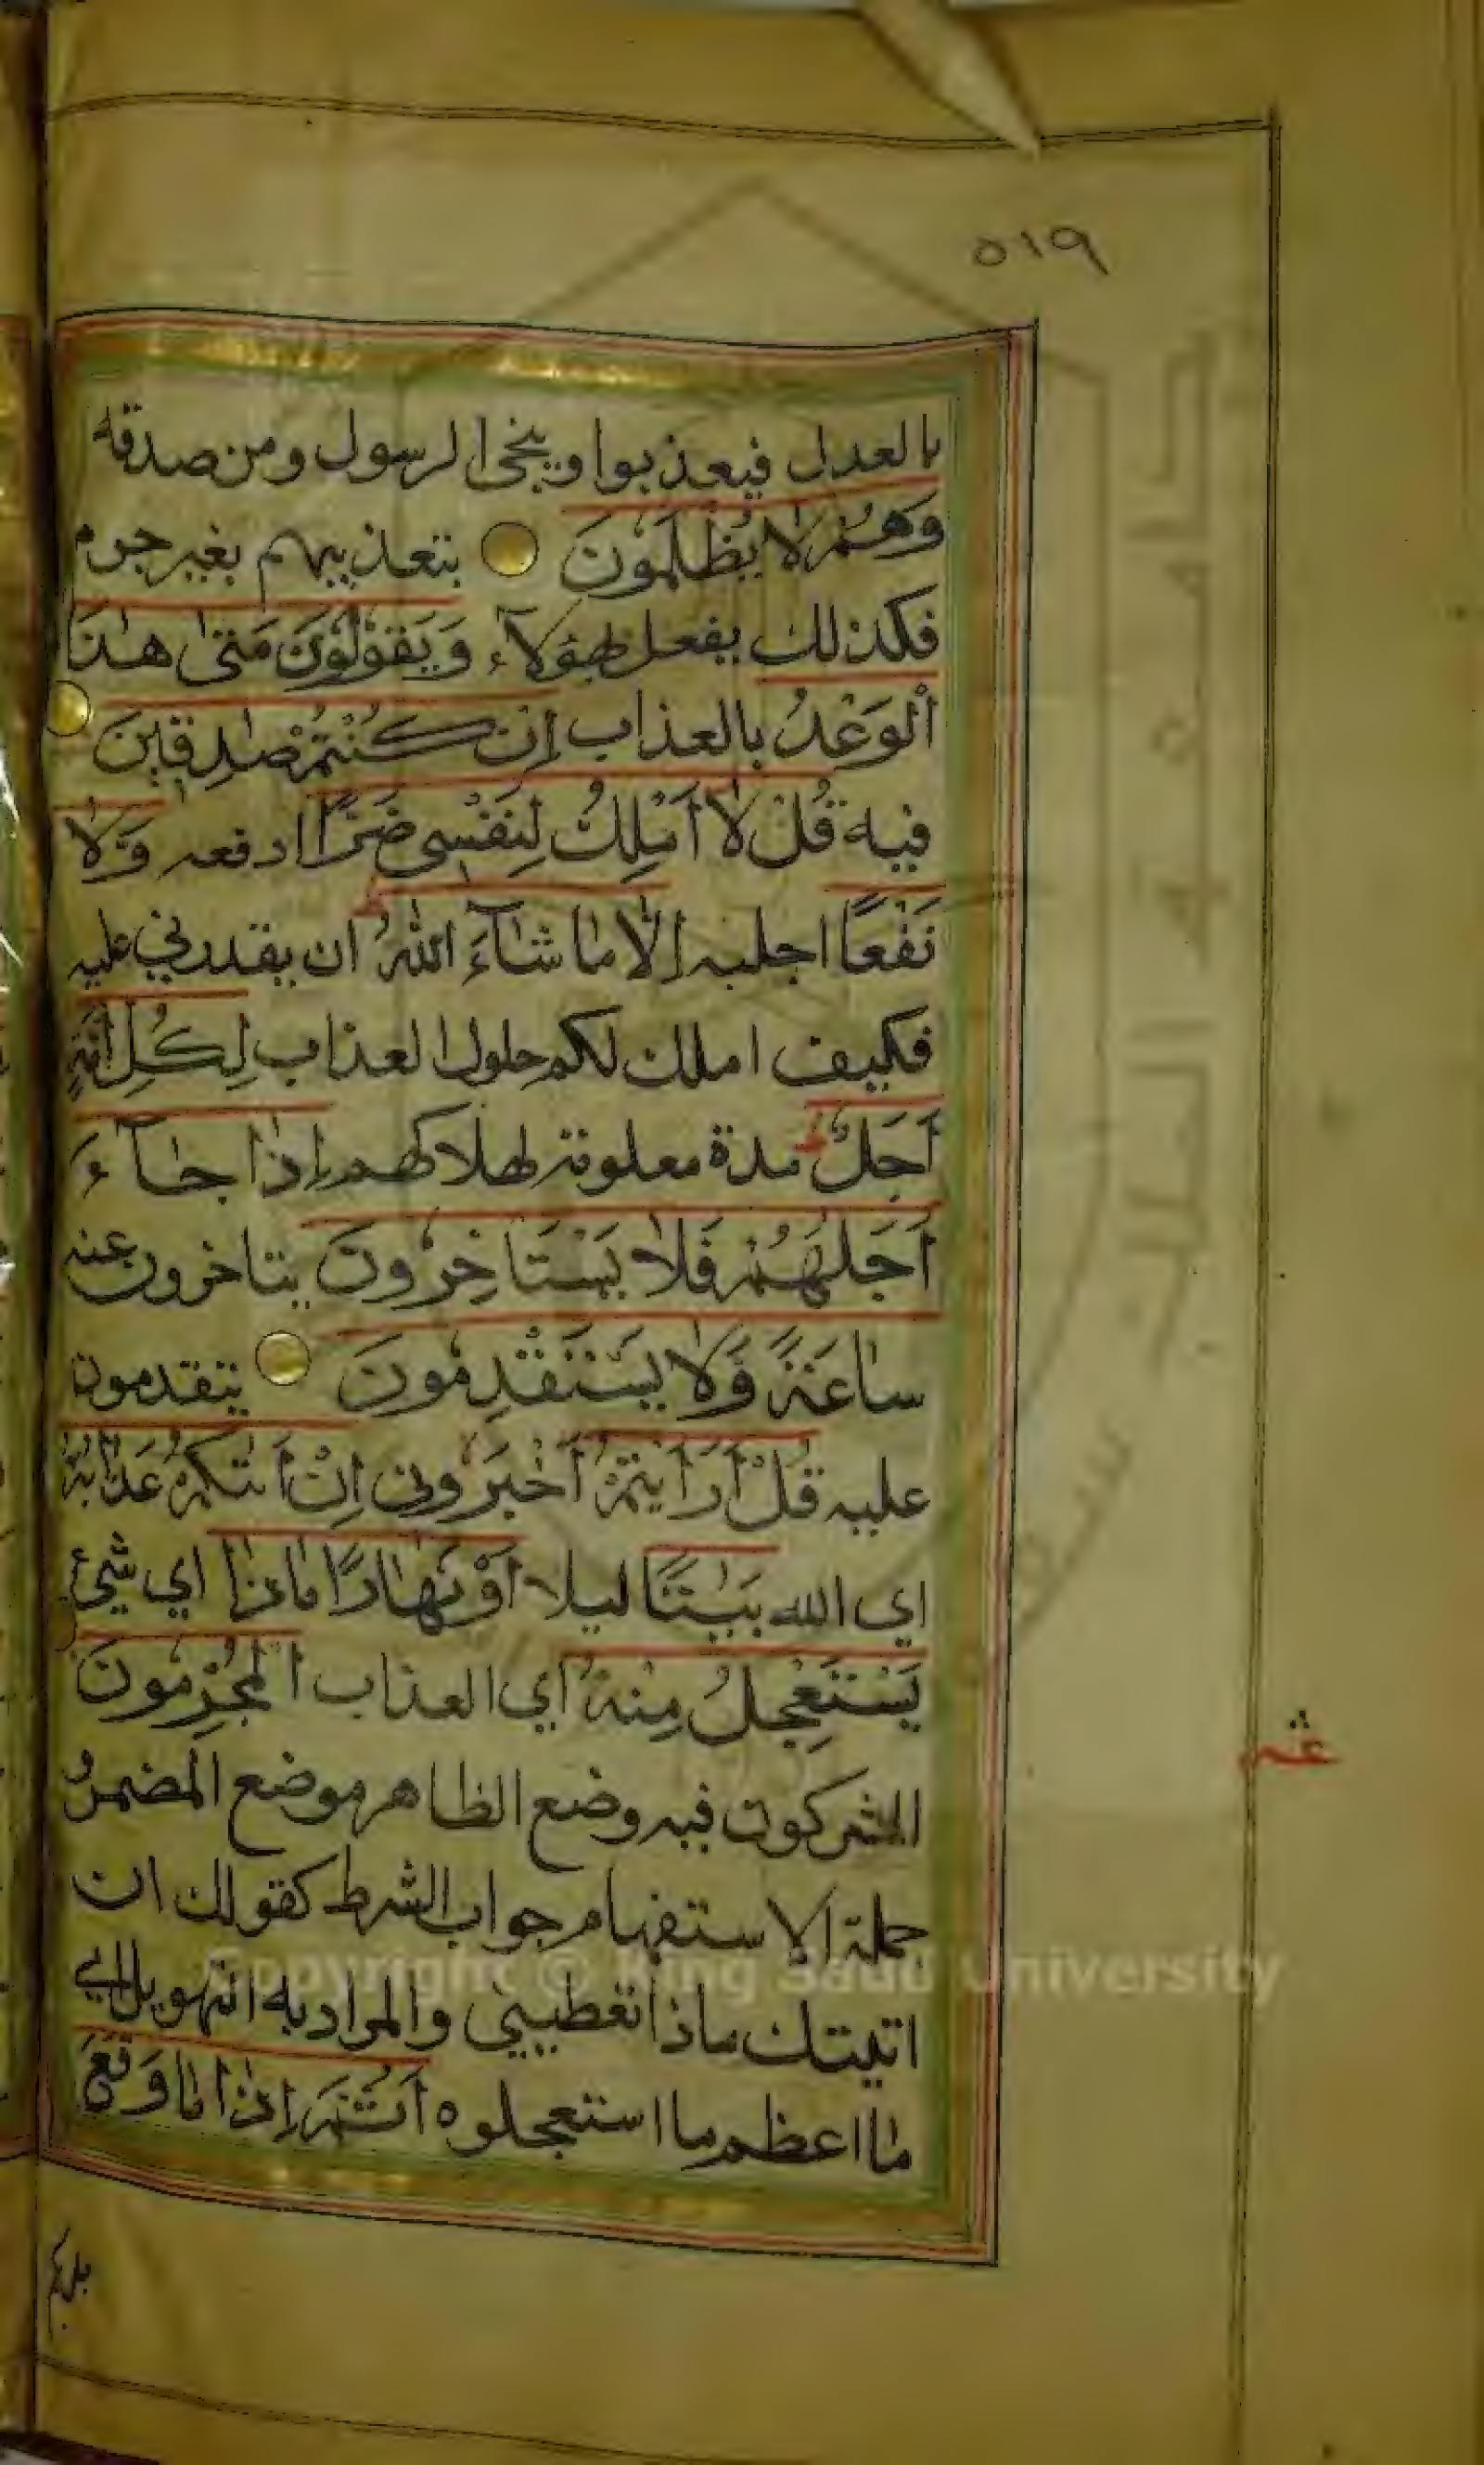 ٥١٩
بالعدل فيعذبوا وينجى الرسول ومن صدقه
وَهُمْ لَا يُظْلَمُوْنَ بتعذيبهم بغير جرم
فكذلك يفعل بهؤلاء وَيَقُوْلُوْنَ مَتٰى هٰذَا
الْوَعْدُ بالعذاب اِنْ كُنْتُمْ صٰدِقِيْنَ
فيه قُلْ لَّا اَمْلِكُ لِنَفْسِى ضَرًّا ادفعه وَّلَا
نَفْعًا اجلبه اِلَّا مَا شَآءَ اللّٰهُ ان يقدرني عليه
فكيف املك لكم حلول العذاب لِكُلِّ اُمَّةٍ
اَجَلٌ مدة معلومة لهلاكهم اِذَا جَآءَ
اَجَلُهُمْ فَلَا يَسْتَاْخِرُوْنَ يتاخرون عنه
سَاعَةً وَّلَا يَسْتَقْدِمُوْنَ يتقدمون
عليه قُلْ اَرَاَيْتُمْ اَخْبَرُونى اِنْ اَتٰىكُمْ عَذَابُهٗ
اي الله بَيٰتًا ليلا اَوْ نَهَارًا مَاذَا اي شيئ
يَسْتَعْجِلُ مِنْهُ اي العذاب الْمُجْرِمُونَ
المشركون فيه وضع الظاهر موضع المضمر
جملة الاستفهام جواب الشرط كقولك ان
اتيتك ماذا تعطيني والمراد به التهويل اي
ما اعظم ما استعجلوه اَثُمَّ اِذَا مَا وَقَعَ
Copyright © King Saud University